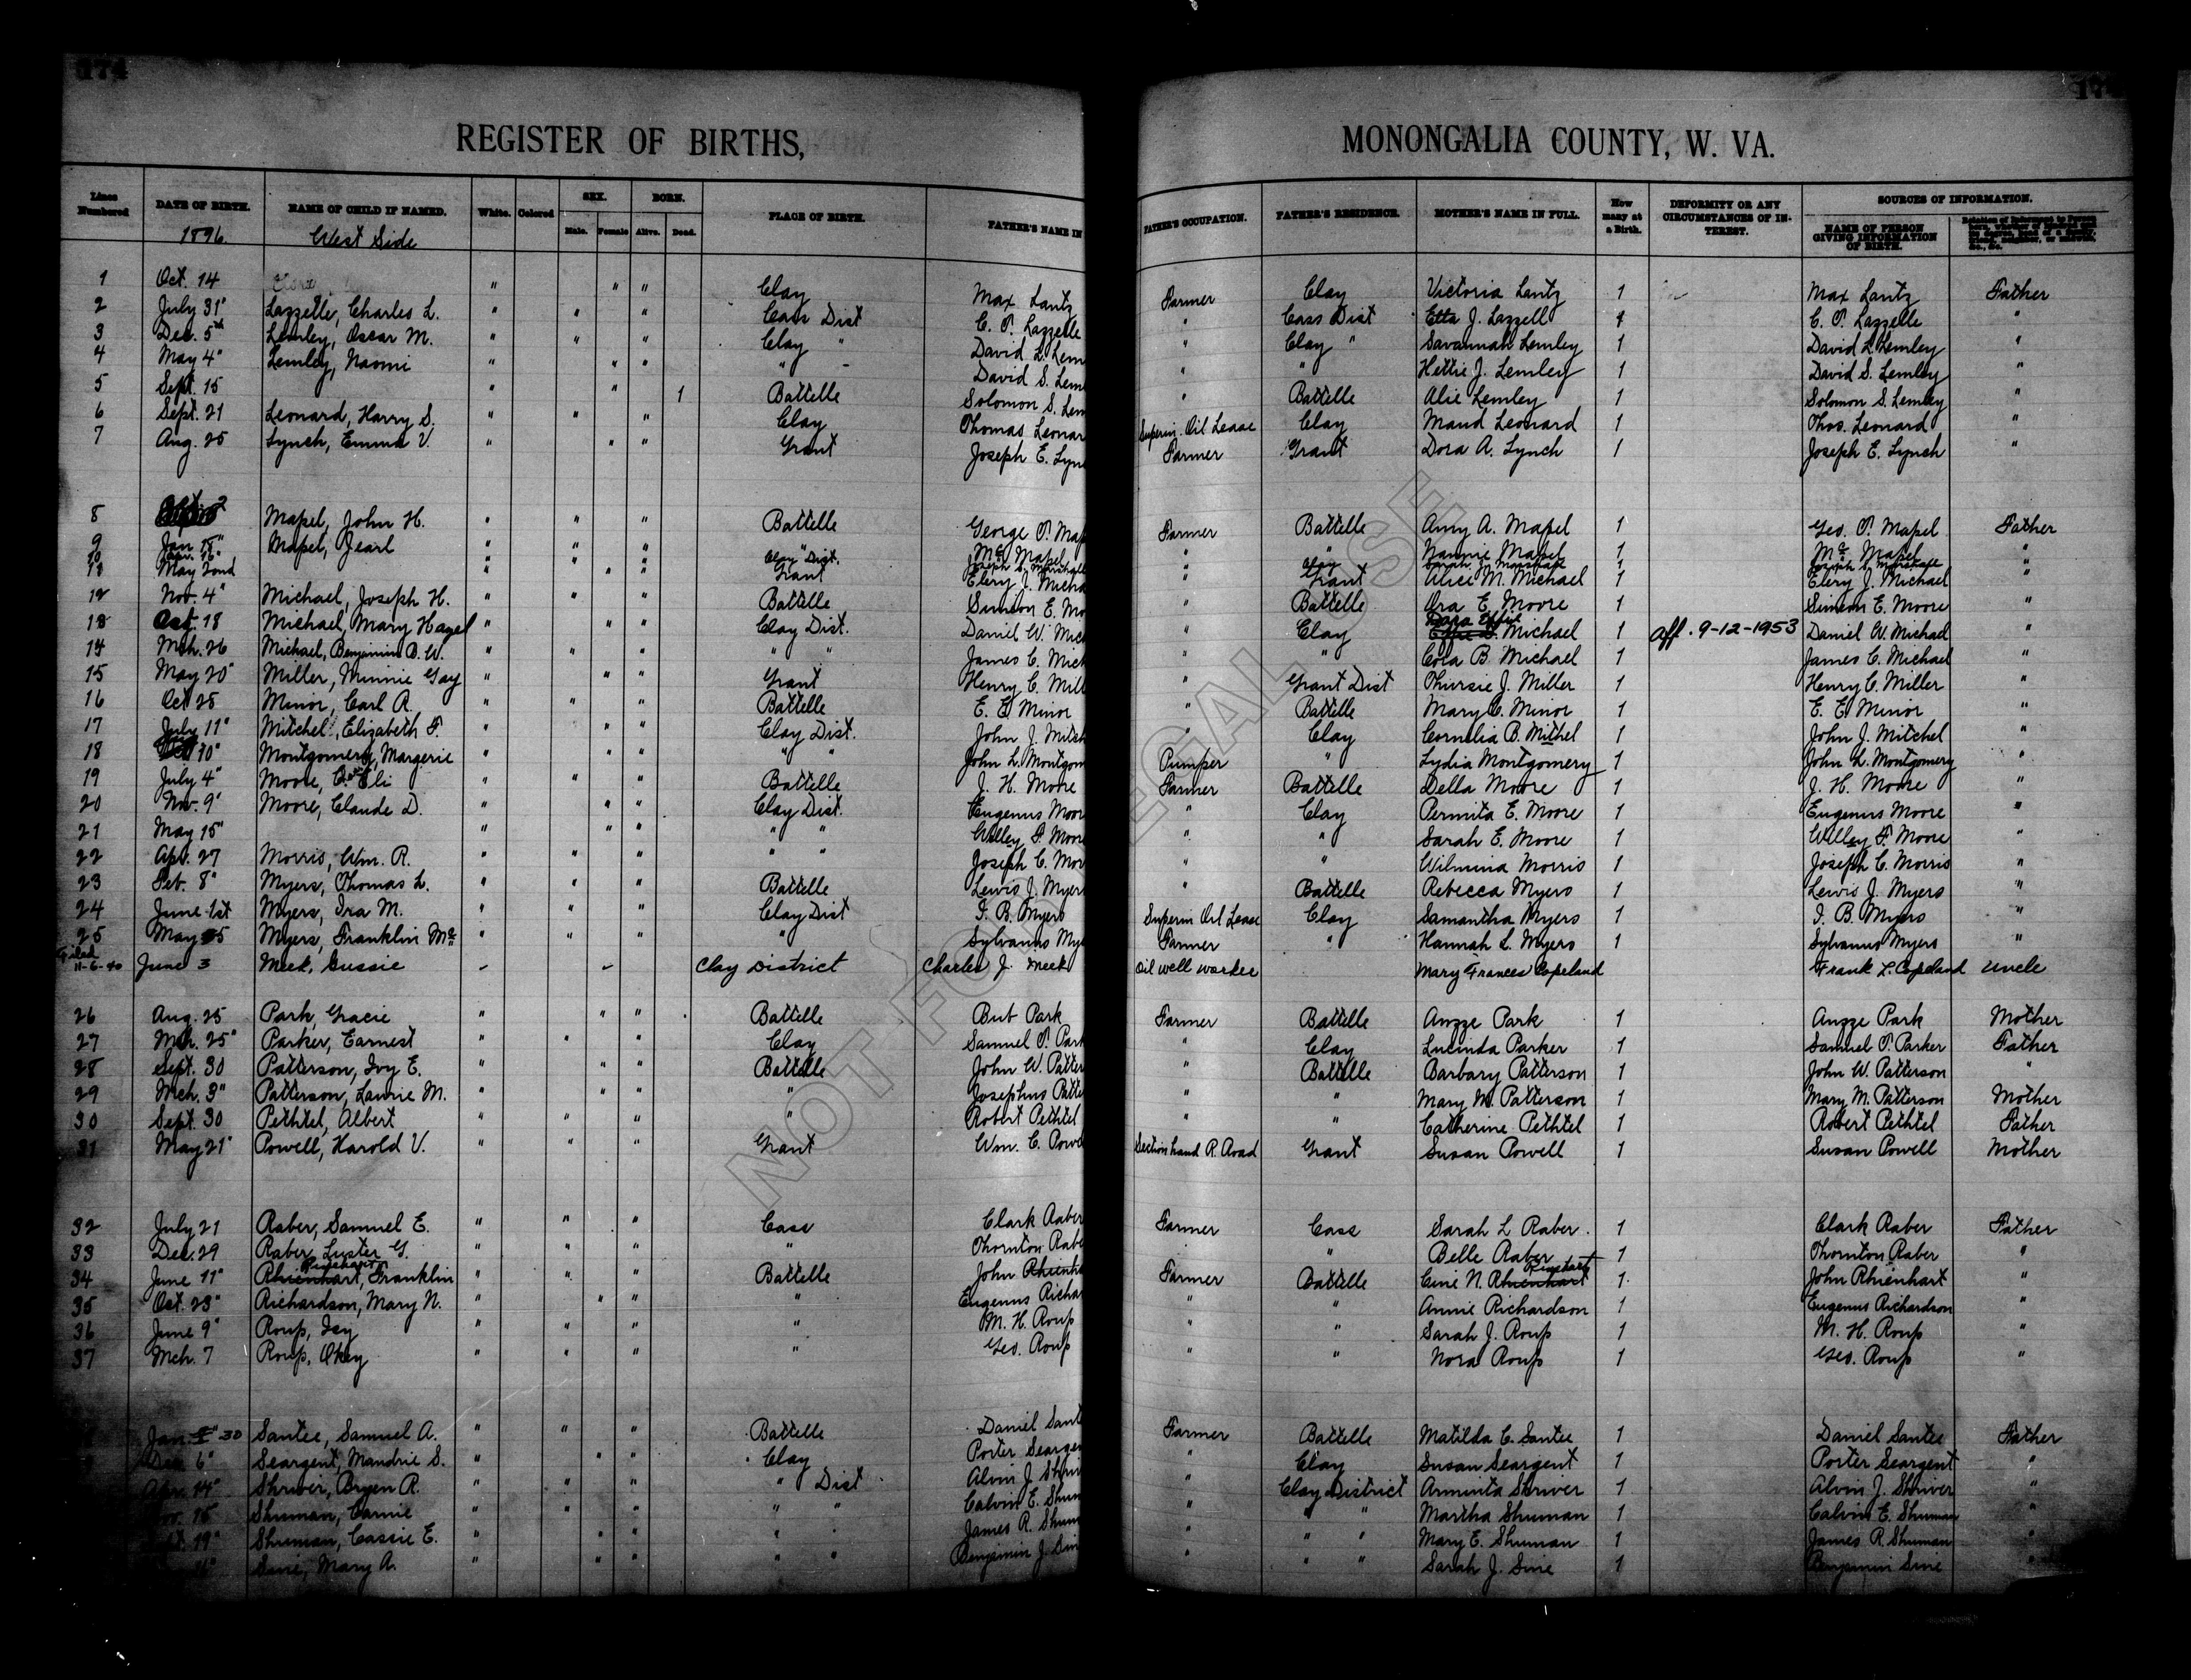 174
REGISTER OF BIRTHS, MONONGALIA COUNTY, W. VA.
Lines Numbered | DATE OF BIRTH. | NAME OF CHILD IF NAMED. | White. | Colored | SEX. Male. Female | BORN. Alive. Dead. | PLACE OF BIRTH. | FATHER'S NAME IN | FATHER'S OCCUPATION. | FATHER'S RESIDENCE. | MOTHER'S NAME IN FULL. | How many at a Birth. | DEFORMITY OR ANY CIRCUMSTANCES OF INTEREST. | SOURCES OF INFORMATION. NAME OF PERSON GIVING INFORMATION OF BIRTH.
1896. West Side
1 Oct. 14 " " " Clay Max Lantz Farmer Clay Victoria Lantz 1 Max Lantz Father
2 July 31" Lazzelle, Charles L. " " " Cass Dist C. P. Lazzelle " Cass Dist Etta J. Lazzell 1 C. P. Lazzelle "
3 Dec. 5th Lemley, Oscar M. " " " Clay " David L. Lem " Clay " Savannah Lemley 1 David L. Lemley "
4 May 4" Lemley, Naomi " " " " David S. Lem " " Hettie J. Lemley 1 David S. Lemley "
5 Sept. 15 " " 1 Battelle Solomon S. Lem " Battelle Alie Lemley 1 Solomon S. Lemley "
6 Sept. 21 Leonard, Harry S. " " " Clay Thomas Leonar Superin. Oil Lease Clay Maud Leonard 1 Thos. Leonard "
7 Aug. 25 Lynch, Emma V. " " " Grant Joseph E. Lyn Farmer Grant Dora A. Lynch 1 Joseph E. Lynch "
8 Mapel, John H. " " " Battelle George P. Map Farmer Battelle Amy A. Mapel 1 Geo. P. Mapel Father
9 Jan Mapel, Jearl " " " " Mc Mapel " " Nannie Mapel 1 Mc Mapel "
10 Apr. 16" " " " Clay Dist. Joseph S. Marshall " Clay Sarah Marshall 1 Joseph S. Marshall "
11 May 2ond " " " Grant Elery J. Micha " Grant Alice M. Michael 1 Elery J. Michael "
12 Nov. 4" Michael, Joseph H. " " " Battelle Simeon E. Mo " Battelle Ora E. Moore 1 Simeon E. Moore "
13 Oct. 18 Michael, Mary Hazel " " " Clay Dist. Daniel W. Mich " Clay Dora Effie Michael 1 aff. 9-12-1953 Daniel W. Michael "
14 Mch. 26 Michael, Benjamin B. W. " " " " " James C. Mich " " Cora B. Michael 1 James C. Michael "
15 May 20" Miller, Minnie Gay " " " Grant Henry C. Mill " Grant Dist Thursie J. Miller 1 Henry C. Miller "
16 Oct 25 Minor, Carl A. " " " Battelle E. E. Minor " Battelle Mary C. Minor 1 E. E. Minor "
17 July 11" Mitchel, Elizabeth F. " " " Clay Dist. John J. Mitch " Clay Cornelia B. Mithel 1 John J. Mitchel "
18 10" Montgomery, Margerie " " " " " John L. Montgom Pumper " Lydia Montgomery 1 John L. Montgomery "
19 July 4" Moore, Eli " " " Battelle J. H. Moore Farmer Battelle Della Moore 1 J. H. Moore "
20 Nov. 9" Moore, Claude D. " " " Clay Dist. Eugenus Moor " Clay Permita E. Moore 1 Eugenus Moore "
21 May 15" " " " " " Willey F. Moore " " Sarah E. Moore 1 Willey F. Moore "
22 Apr. 27 Morris, Wm. R. " " " " " Joseph C. Mor " " Wilmina Morris 1 Joseph C. Morris "
23 Feb. 8" Myers, Thomas L. " " " Battelle Lewis J. Myers " Battelle Rebecca Myers 1 Lewis J. Myers "
24 June 1st Myers, Ira M. " " " Clay Dist I. B. Myers Superin Oil Lease Clay Samantha Myers 1 I. B. Myers "
25 May 5 Myers, Franklin Mc " " " " Sylvanus Mye Farmer " Hannah L. Myers 1 Sylvanus Myers "
Filed 11-6-40 June 3 Meek, Gussie Clay District Charles J. Meek Oil well worker Mary Frances Copeland Frank L. Copeland Uncle
26 Aug. 25 Park, Gracie " " " Battelle But Park Farmer Battelle Angze Park 1 Angze Park Mother
27 Mch. 25" Parker, Earnest " " " Clay Samuel P. Park " Clay Lucinda Parker 1 Samuel P. Parker Father
28 Sept. 30 Patterson, Ivy E. " " " Battelle John W. Patter " Battelle Barbary Patterson 1 John W. Patterson "
29 Mch. 3" Patterson, Laurie M. " " " " Josephus Patte " " Mary M. Patterson 1 Mary M. Patterson Mother
30 Sept. 30 Pethtel, Albert " " " " Robert Pethtel " " Catherine Pethtel 1 Robert Pethtel Father
31 May 21" Powell, Harold V. " " " Grant Wm. C. Powe Section hand R. Road Grant Susan Powell 1 Susan Powell Mother
32 July 21 Raber, Samuel E. " " " Cass Clark Raber Farmer Cass Sarah L Raber. 1 Clark Raber Father
33 Dec. 29 Raber, Luster G. " " " " Thornton Rabe " Belle Raber 1 Thornton Raber "
34 June 11" Rhienhart, Rinehart Franklin " " " Battelle John Rhienha Farmer Battelle Cine N. Rhienhart Rinehart 1 John Rhienhart "
35 Oct. 23" Richardson, Mary N. " " " " Eugenus Richa " " Annie Richardson 1 Eugenus Richardson "
36 June 9" Roup, Jay " " " " M. H. Roup " " Sarah J. Roup 1 M. H. Roup "
37 Mch. 7 Roup, Okey " " " " Geo. Roup " " Nora Roup 1 Geo. Roup "
Jan. 30 Santee, Samuel A. " " " Battelle Daniel Sant Farmer Battelle Matilda C. Santee 1 Daniel Santee Father
6" Seargent, Mandrie S. " " " Clay Porter Seargen " Clay Susan Seargent 1 Porter Seargent "
Apr. 14" Shriver, Bryen R. " " " " Dist Alvin J. Shriv " Clay District Arminta Shriver 1 Alvin J. Shriver "
15 Shuman, Camie " " " " " Calvin E. Shum " " " Martha Shuman 1 Calvin E. Shuman "
19" Shuman, Cassie E. " " " " " James R. Shum " " " Mary E. Shuman 1 James R. Shuman "
16" Sine, Mary A. " " " " " Benjamin J. Sin " " " Sarah J. Sine 1 Benjamin Sine "
NOT FOR LEGAL USE